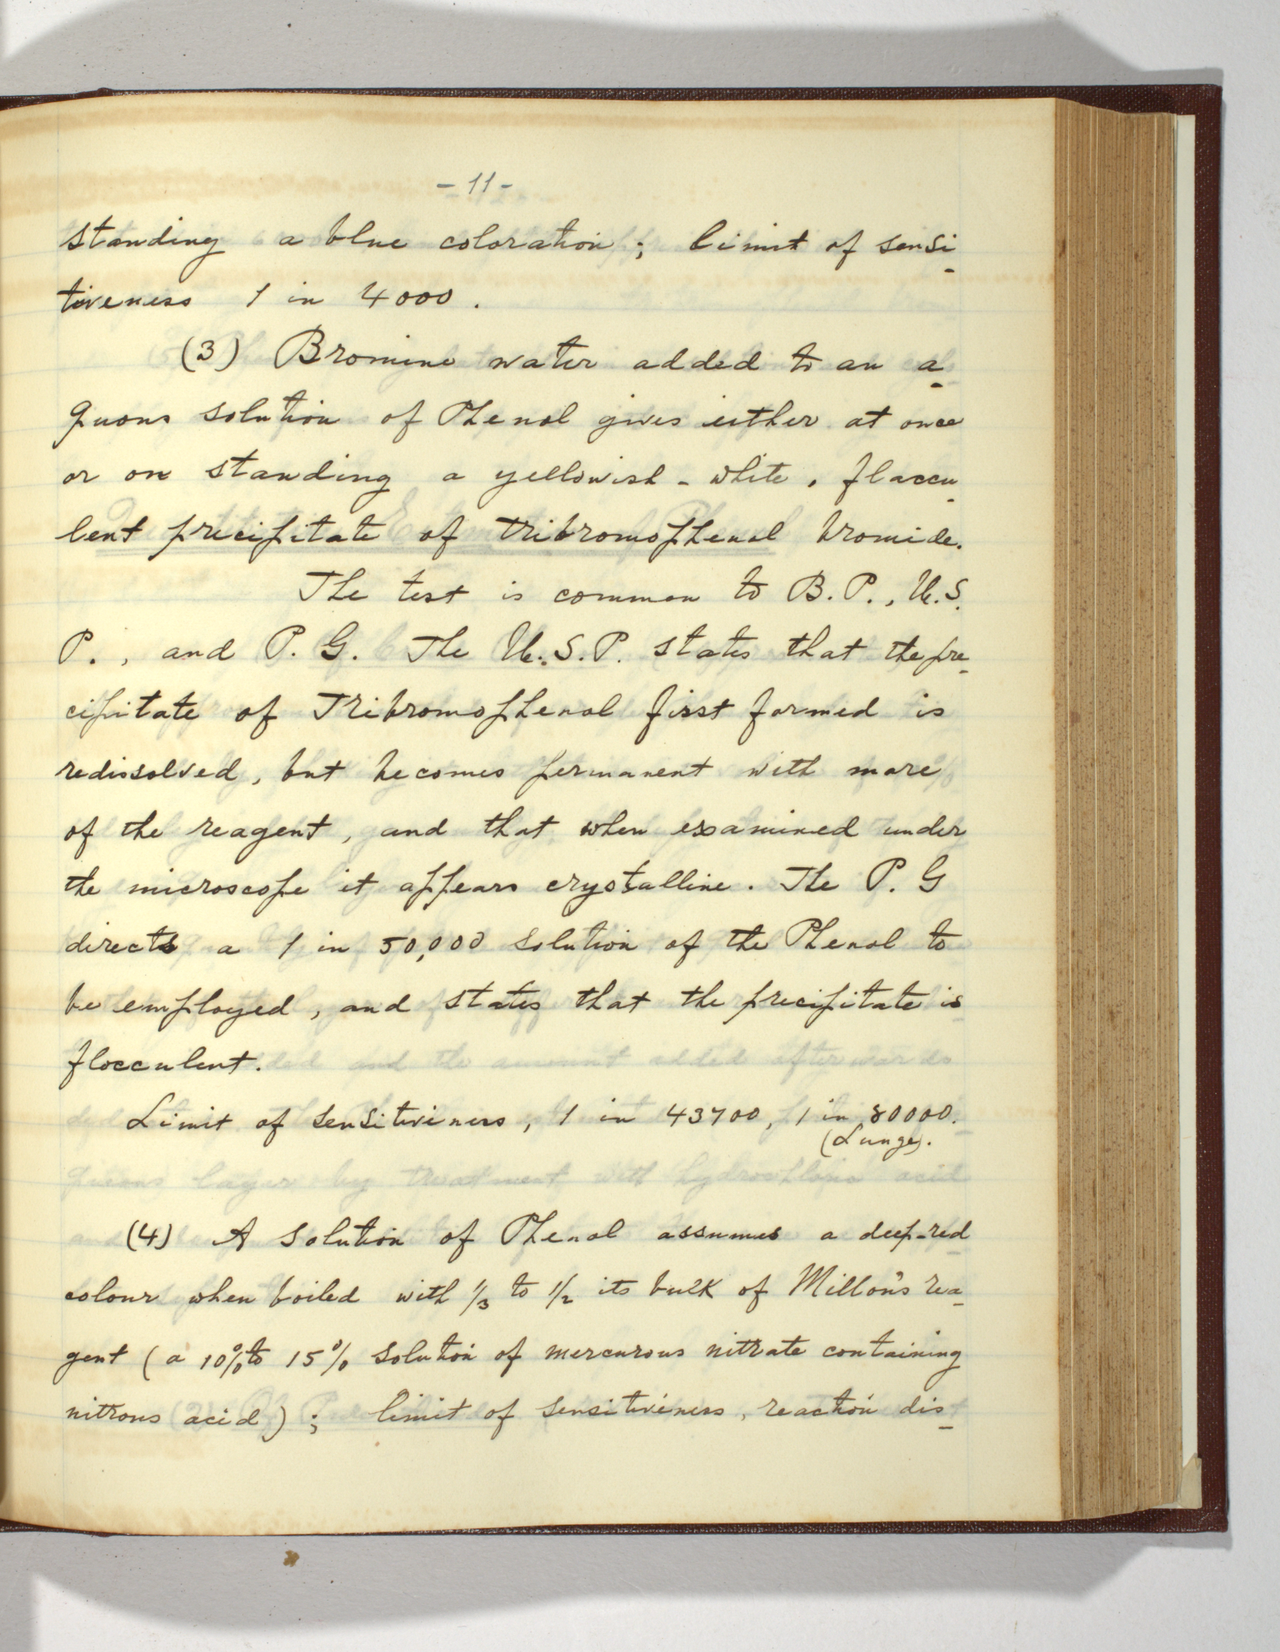 - 11 -
standing a blue coloration; limit of sensi-
tiveness 1 in 4000.
(3) Bromine water added to an a-
quous solution of Phenol gives either at once
or on standing a yellowish-white, floccu-
lent precipitate of tribromophenol bromide.
The test is common to B.P., U.S.
P., and P.G. The U.S.P. states that the pre-
cipitate of Tribromophenol first formed is
redissolved, but becomes permanent with more
of the reagent, and that when examined under
the microscope it appears crystalline. The P.G
directs a 1 in 50,000 solution of the Phenol to
be employed, and states that the precipitate is
flocculent.
Limit of sensitiveness, 1 in 43700, 1 in 80000.
(Lunge).
(4) A solution of Phenol assumes a deep-red
colour when boiled with 1/3 to 1/2 its bulk of Millon's rea-
gent (a 10% to 15% solution of mercurous nitrate containing
nitrous acid); limit of sensitiveness, reaction dis-